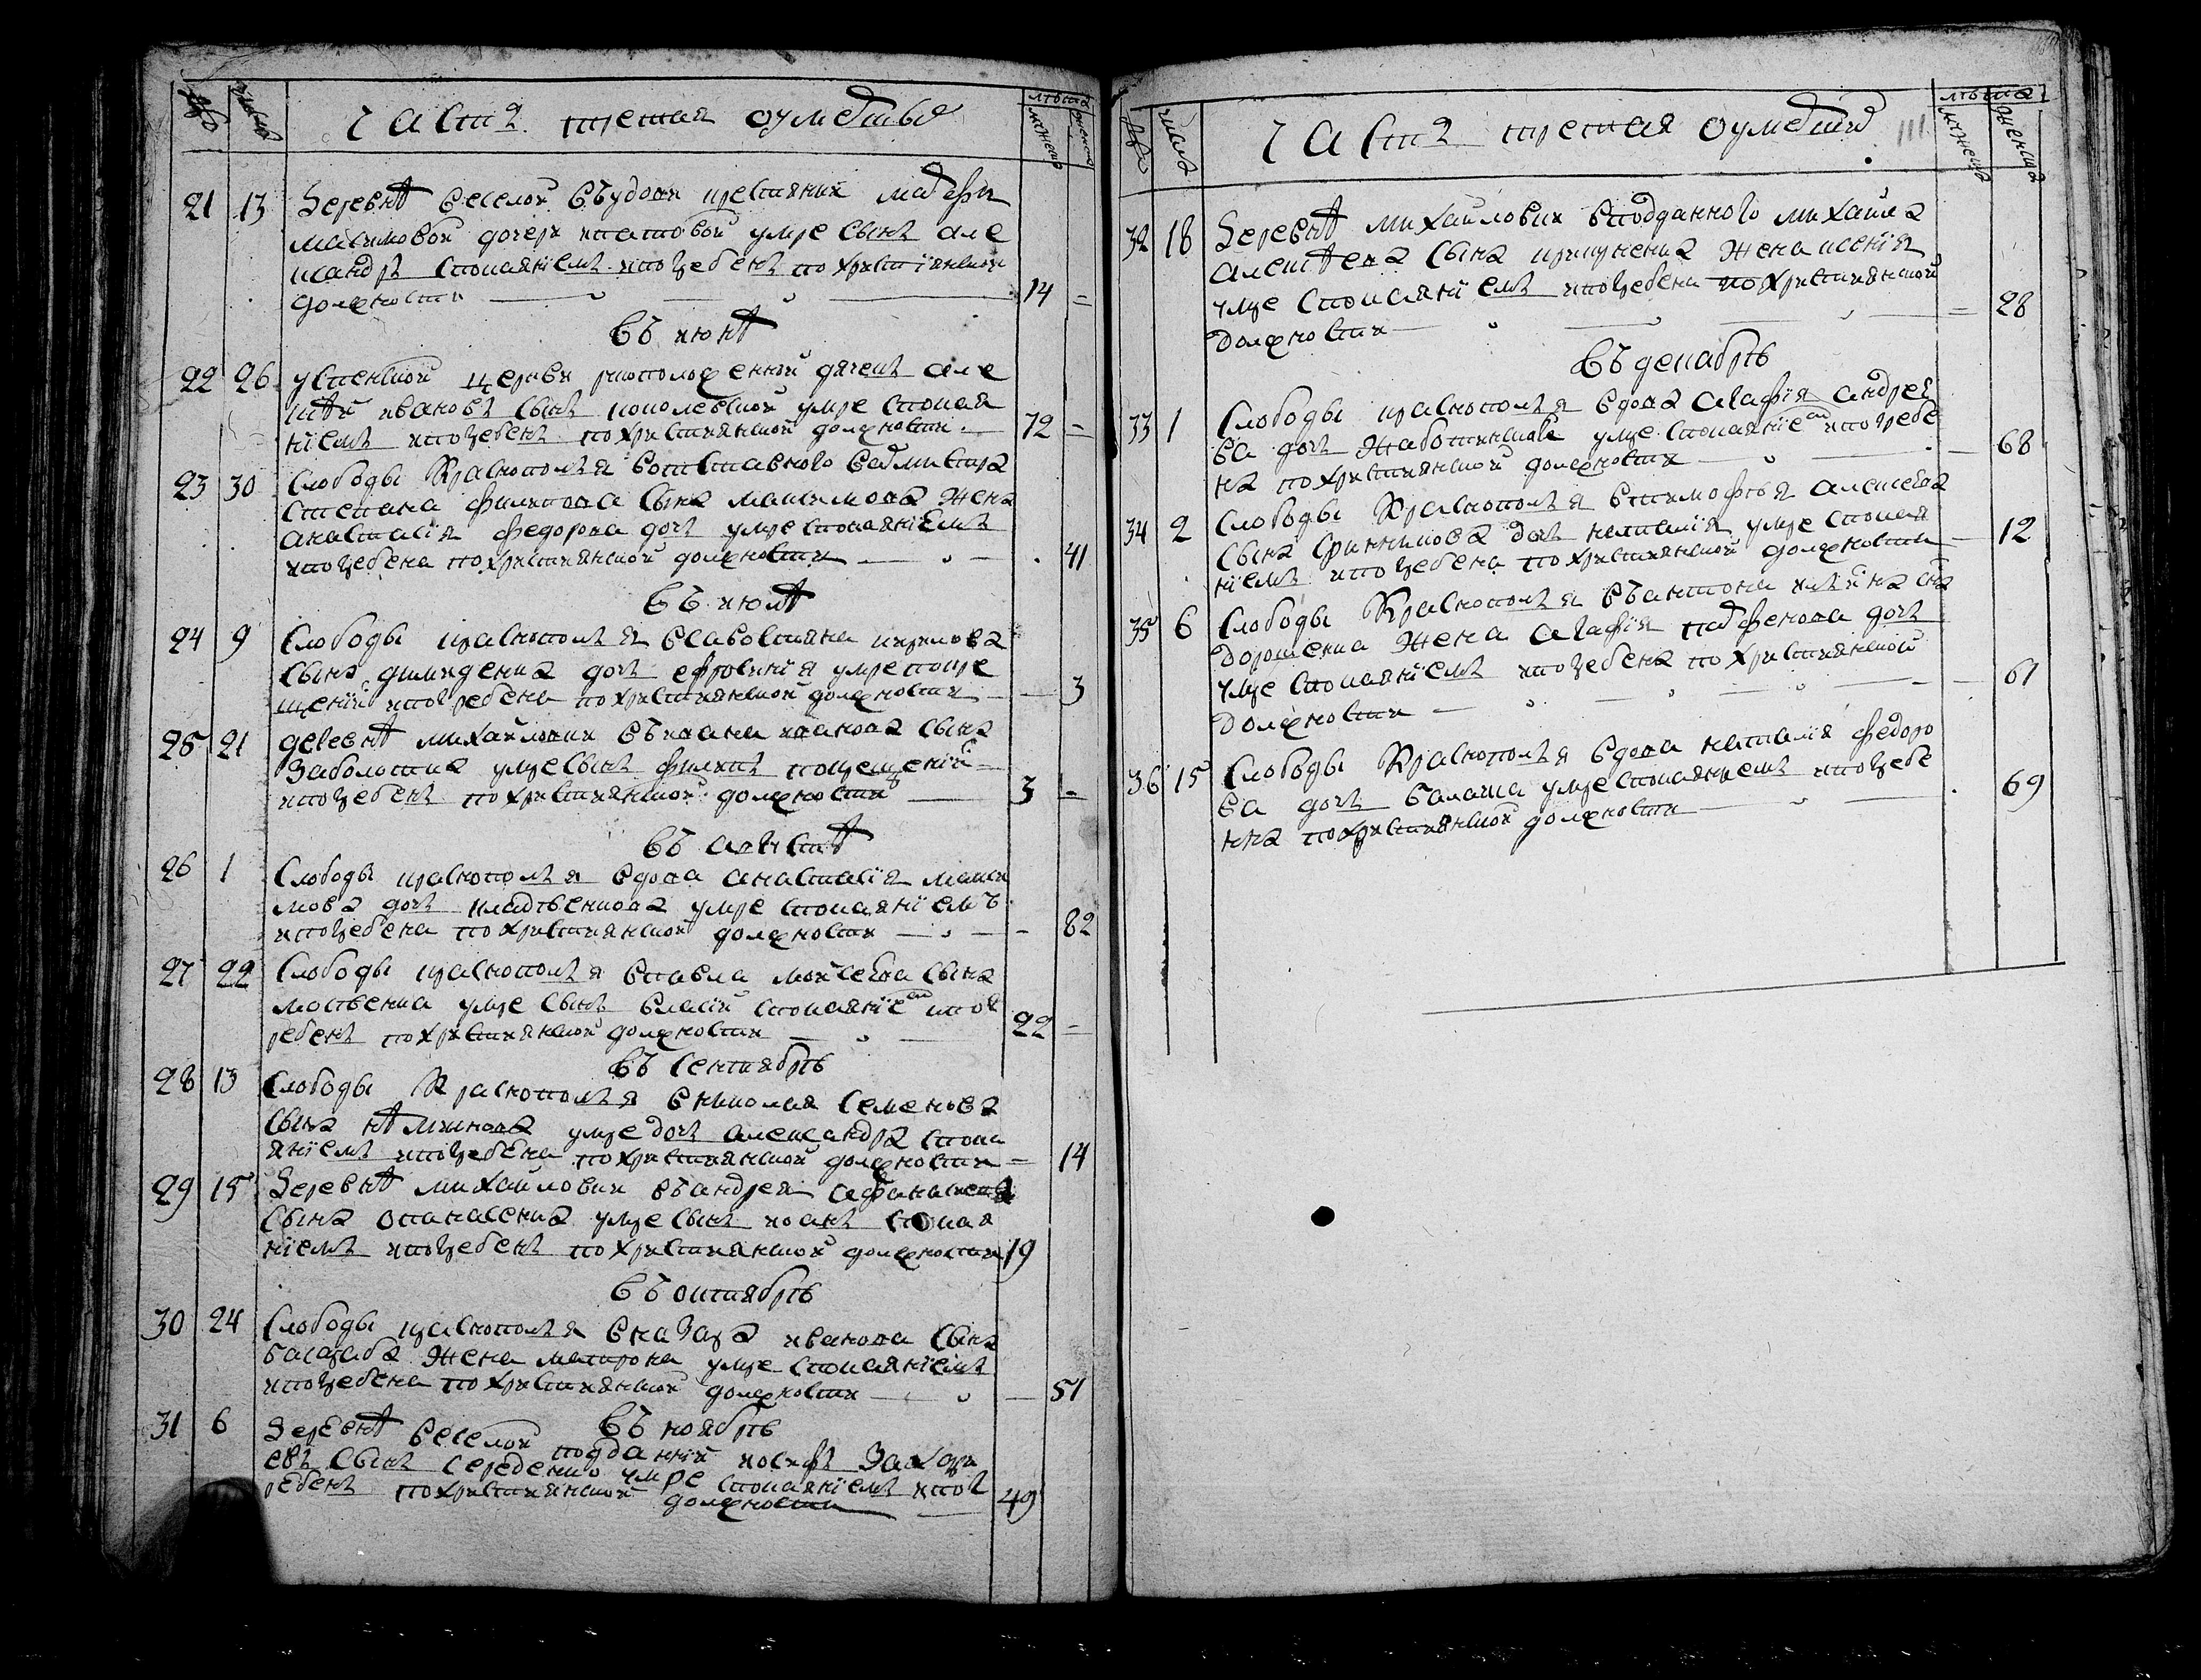 часть третая оумершыя
лета
мужеска
женска
21 13 Деревне Веселой въ вдовы крестянки
максимовой дочери умре сынъ але
ксандръ с покаяніемъ и погребенъ по христіянской
должности 14 =
въ июне
22 26 успенской церкви дячекъ але
ивановъ сынъ умре с покая
ніемъ и погребенъ по християнской должности 72 =
23 30 Слободы Краснополья в отставного вахмистра
степана филипова сына максимова жена
анастасія федорова дочь умре с покаяніемъ
и погребена по християнской должности 41
въ июле
24 9 Слободы краснополья в савостияна кирилова
сына дочь ефросинія умре по кре
щеніи и погребена по християнской должности 3
25 21 деревне михайловки въ ивана иванова сына
заболотна умре сынъ филипъ по крещеніи
и погребенъ по християнской должности 3 =
въ августе
26 1 Слободы краснополья вдова анастасія макси
мова дочь умре с покаяніемъ
и погребена по християнской должности - 82
27 22 Слободы краснополья в павла мойсеева сына
умре сынъ власій с покаяніем и пог
ребенъ по християнской должности 22 =
въ сентябре
28 13 Слободы Краснополья в николая семенова
сына умре дочь александра с пока
яніемъ и погребена по християнской должности = 14
29 15 Деревне михайловки въ андрея афанасиева
сына опанасенка умре сынъ иоанъ с покая
ніемъ и погребенъ по християнской должности 19
въ октябре
30 24 Слободы краснополья в назара иванова сына
жена матрона умре с покаяніемъ
и погребена по християнской должности 51
въ ноябре
31 6 Деревне веселой подданній иосифъ захари
евъ сынъ середенко умре с покаяніемъ и пог
ребенъ по християнской должности 49
часть третая оумершія
111
числа
лета
мужеска
женска
32 18 Деревне михайловки в подданного михайла
алексеева сына жена ксенія
умре с покаяніемъ и погребена по християнской
должности = 28
въ декабре
33 1 Слободы краснополья вдова агафія андрее
ва дочь умре с покаяніем и погребе
на по християнской должности 68
34 2 Слободы Краснополья в тимофея алексеева
сына дочь наталія умре с покая
ніемъ и погребена по християнской должности 12
35 6 Слободы Краснополья въ антона сна
дорошенка жена агафія парфенова дочь
умре с покаяніемъ и погребена по християнской
должности 61
36 15 Слободы Краснополья вдова наталія федоро
ва дочь умре с покаяниемъ и погребе
нна по християнской должности 69